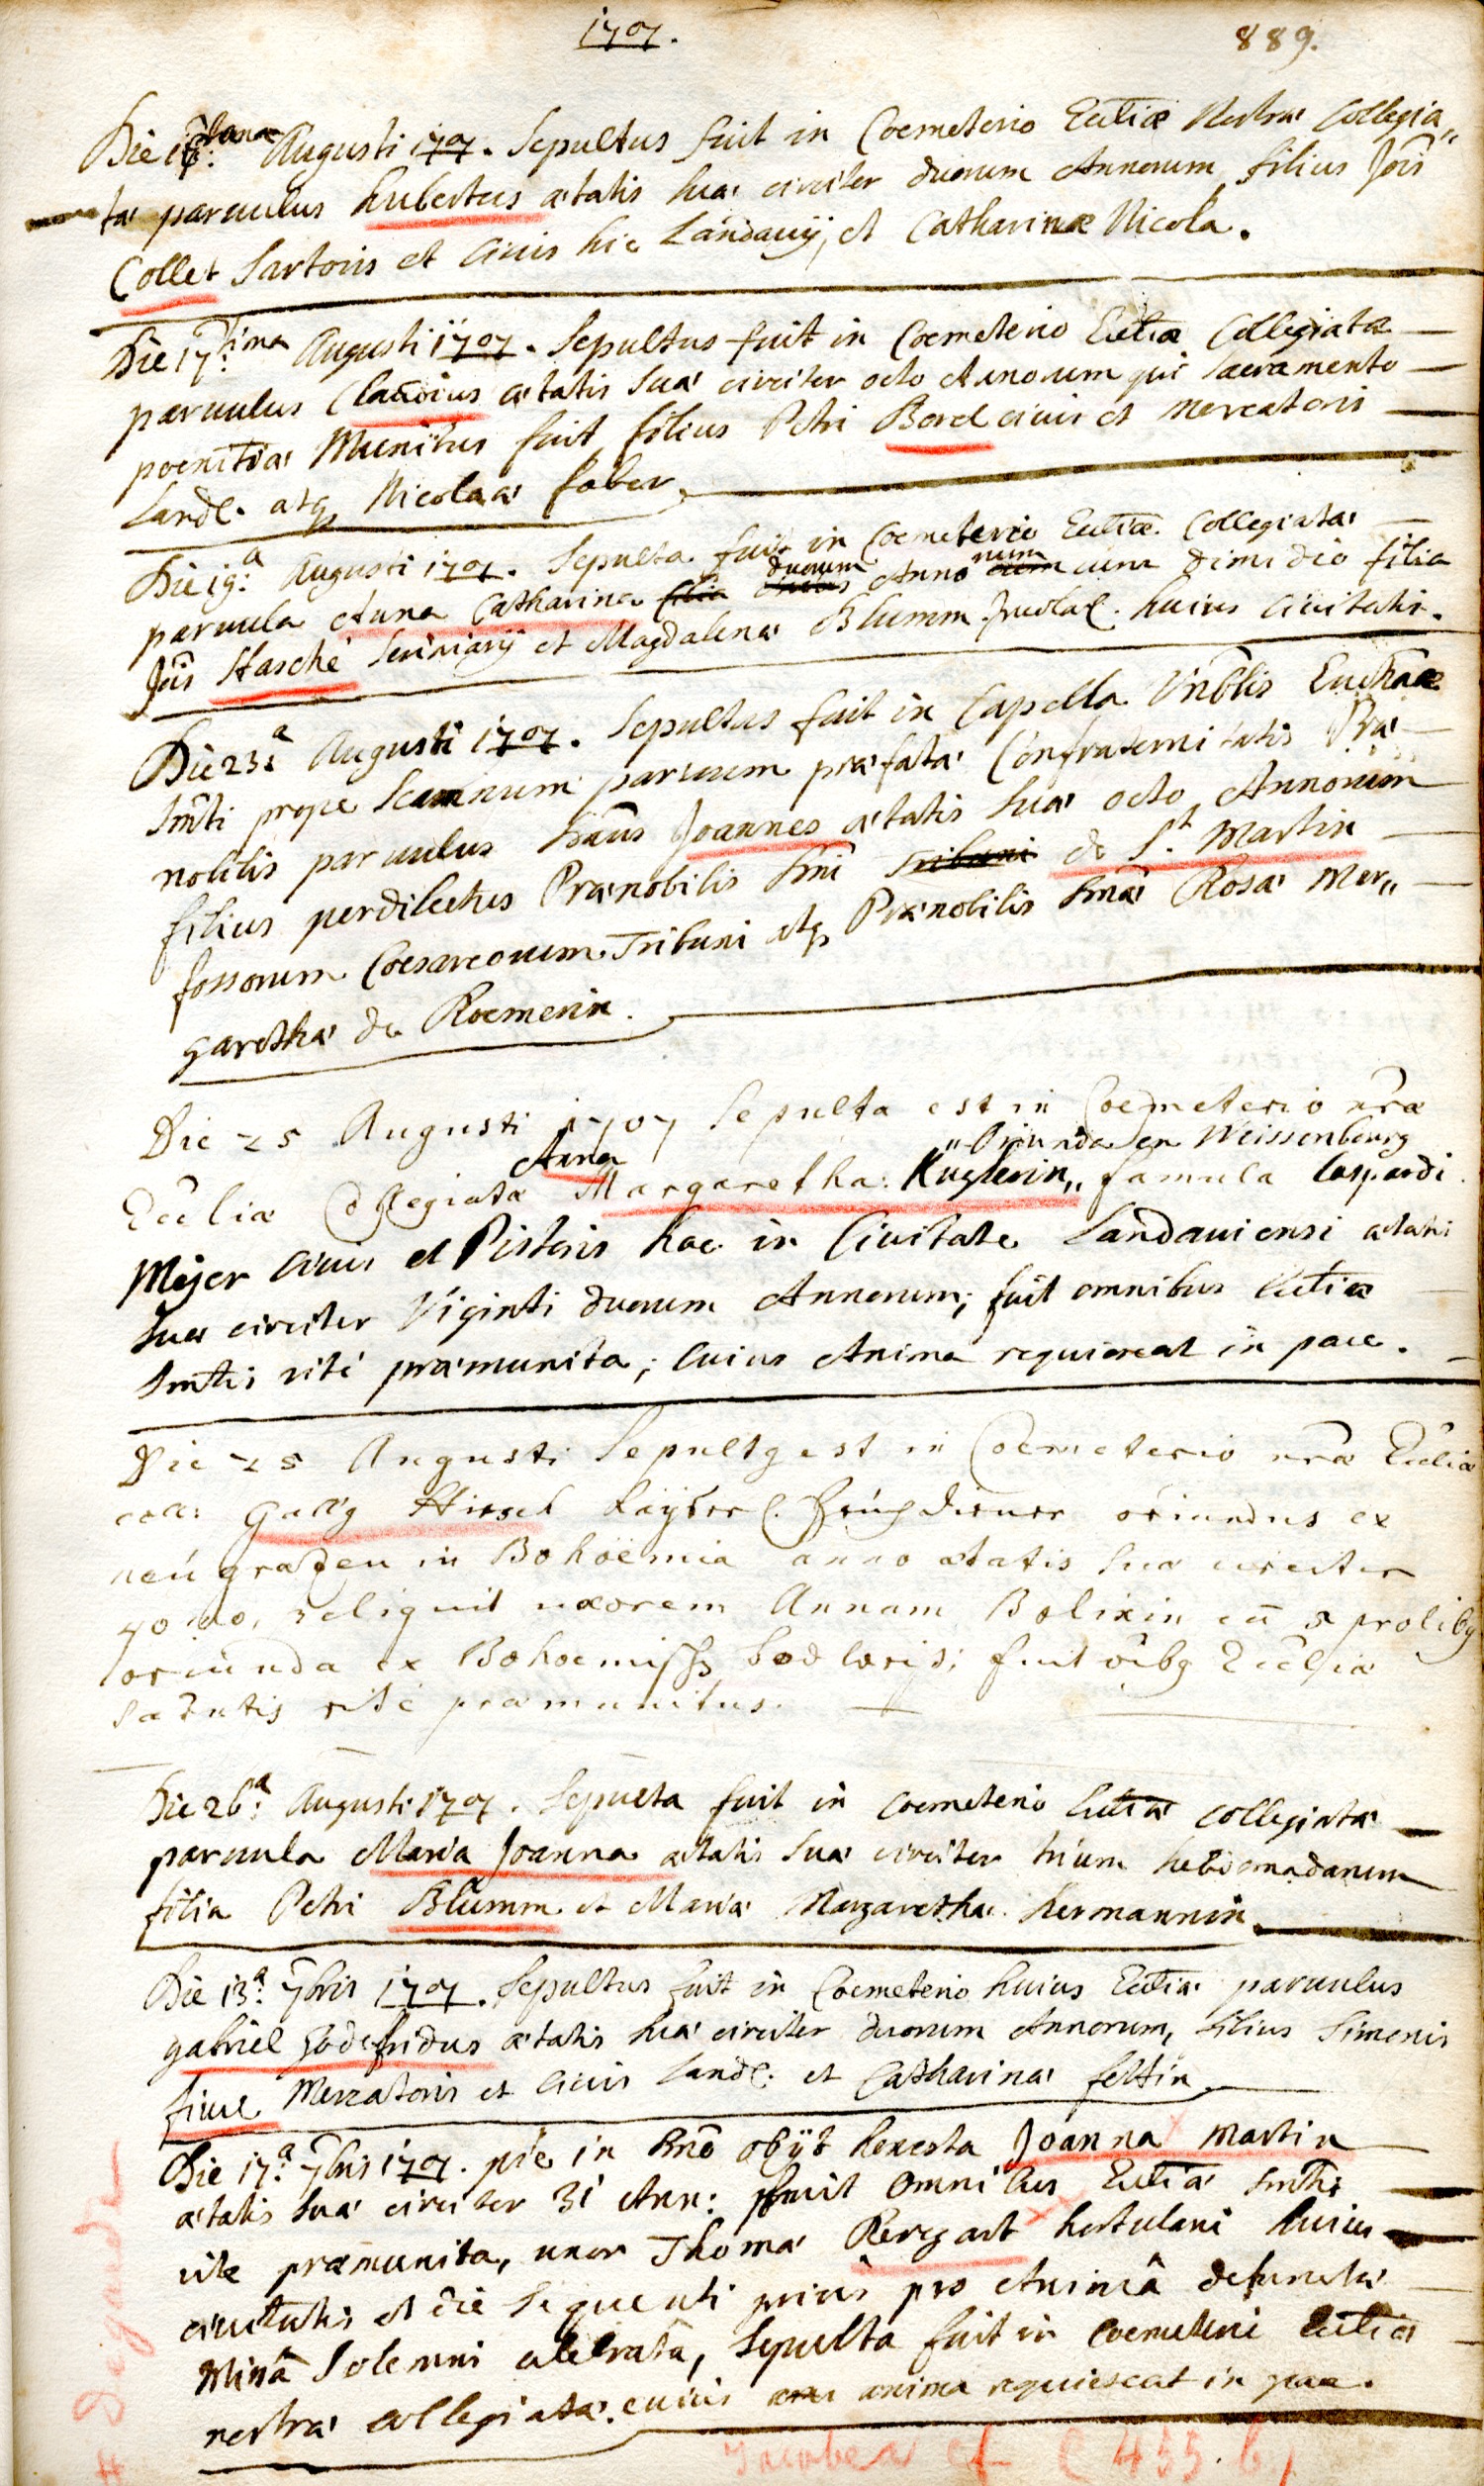 1707.
889.
Die 16: Augusti 1707. Sepultus fuit in Coemeterio Eccliæ Nostræ Collegia„
tæ paruulus hubertus ætatis suæ circiter duorum Annorum filius Jois
Collet Sartoris et Ciuis hic Landauij, et Catharinæ Nicola.
Die 17:ima Augusti 1707. Sepultus fuit in Coemeterio Eccliæ Collegiatæ
paruulus Claudius ætatis suæ circiter octo Annorum qui sacramento
poenitiæ Munitus fuit, filius Petri Borel ciuis et Mercatoris
Land. atq Nicolaæ faber.
Die 19:a Augusti 1707. Sepulta fuit in Coemeterio Eccliæ Collegiatæ
duorum num
paruula Anna Catharina filia Anno cum dimidio filia
Jois Hasché scriniarij et Magdalenæ Blumm huius Ciuitatis.
Die 23:a Augusti 1707. Sepultus fuit in Capella Vnblis Euchæ
Smti prope Scamnum paruum præfatæ Confraternitatis Præ
nobilis paruulus Dnus Joannes ætatis suæ octo Annorum
filius perdilectus Prænobilis Dni Tribuni de St. Martin
fossorum Cæsareorum Tribuni atq Prænobilis Dnæ Rosæ Mar„
garethæ de Roemerin.
Die 25 Augusti 1707 Sepulta est in Coemeterio nræ
Anna „Oriunda ex Weissenbourg
Eccliæ Collegiatæ Margaretha Kuglerin„ famula Caspardi
Mejer Ciuis et Pistoris hac in Ciuitate Landauiensi ætatis
suæ circiter Viginti duorum Annorum; fuit omnibus Eccliæ
Smtis rité præmunita; Cuius Anima requiescat in pace.
Die 25 Augusti Sepultg est in Coemeterio nræ Eccliæ
coll: Gallg Hirsch Kayserl. oriundus ex
neugratzen in Bohoëmia anno ætatis suæ circiter
40 mo, reliquit uxorem Annam Bolixin cū 5 prolibg
oriunda ex fuit oibg Eccliæ
Satntis rité præmunitus.
Die 26:a Augusti 1707. Sepulta fuit in Coemeterio Eccliæ collegiatæ
paruula Maria Joanna ætatis suæ circiter trium hebdomadarum
filia Petri Blumm et Mariæ Margarethæ hermannin
Die 13:a 7bris 1707. Sepultus fuit in Coemeterio huius Eccliæ paruulus
gabriel godefridus ætatis suæ circiter duorum Annorum, filius Simonis
fiue Mercatoris et Ciuis Land. et Catharinæ feltin
Die 17:a 7bris 1707. pié in Dno obijt honesta Joanna Martin
ætatis suæ circiter 31 Ann: fuit Omnibus Eccliæ Smtis
rite præmunita, uxor Thomæ Rengart hortulani huius
ciuitatis et die sequenti prius pro Animâ defunctæ
Missâ Solemni celebratâ, Sepulta fuit in Coemeterio Eccliæ
nostræ collegiatæ. cuius anima requiescat in pace.
Jacobea cf C 455. b)